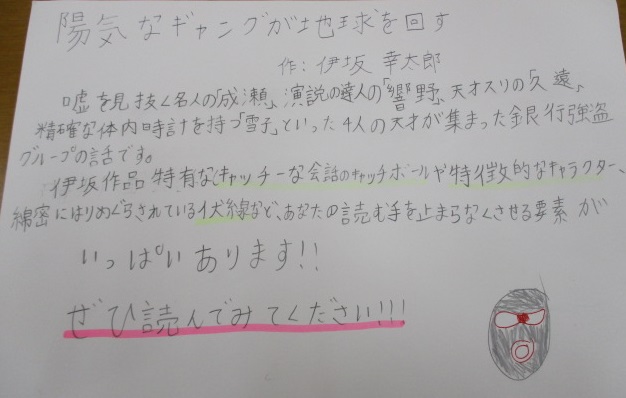 陽気なギャングが地球を回す
作：伊坂 幸太郎
嘘を見抜く名人の「成瀬」、演説の達人の「響野」、天才スリの「久遠」、
精確な体内時計を持つ「雪子」といった4人の天才が集まった銀行強盗
グループの話です。
伊坂作品特有なキャッチーな会話のキャッチボールや特徴的なキャラクター、
綿密にはりめぐらされている伏線など、あなたの読む手を止まらなくさせる要素が
いっぱいあります!!
ぜひ読んでみてください!!!